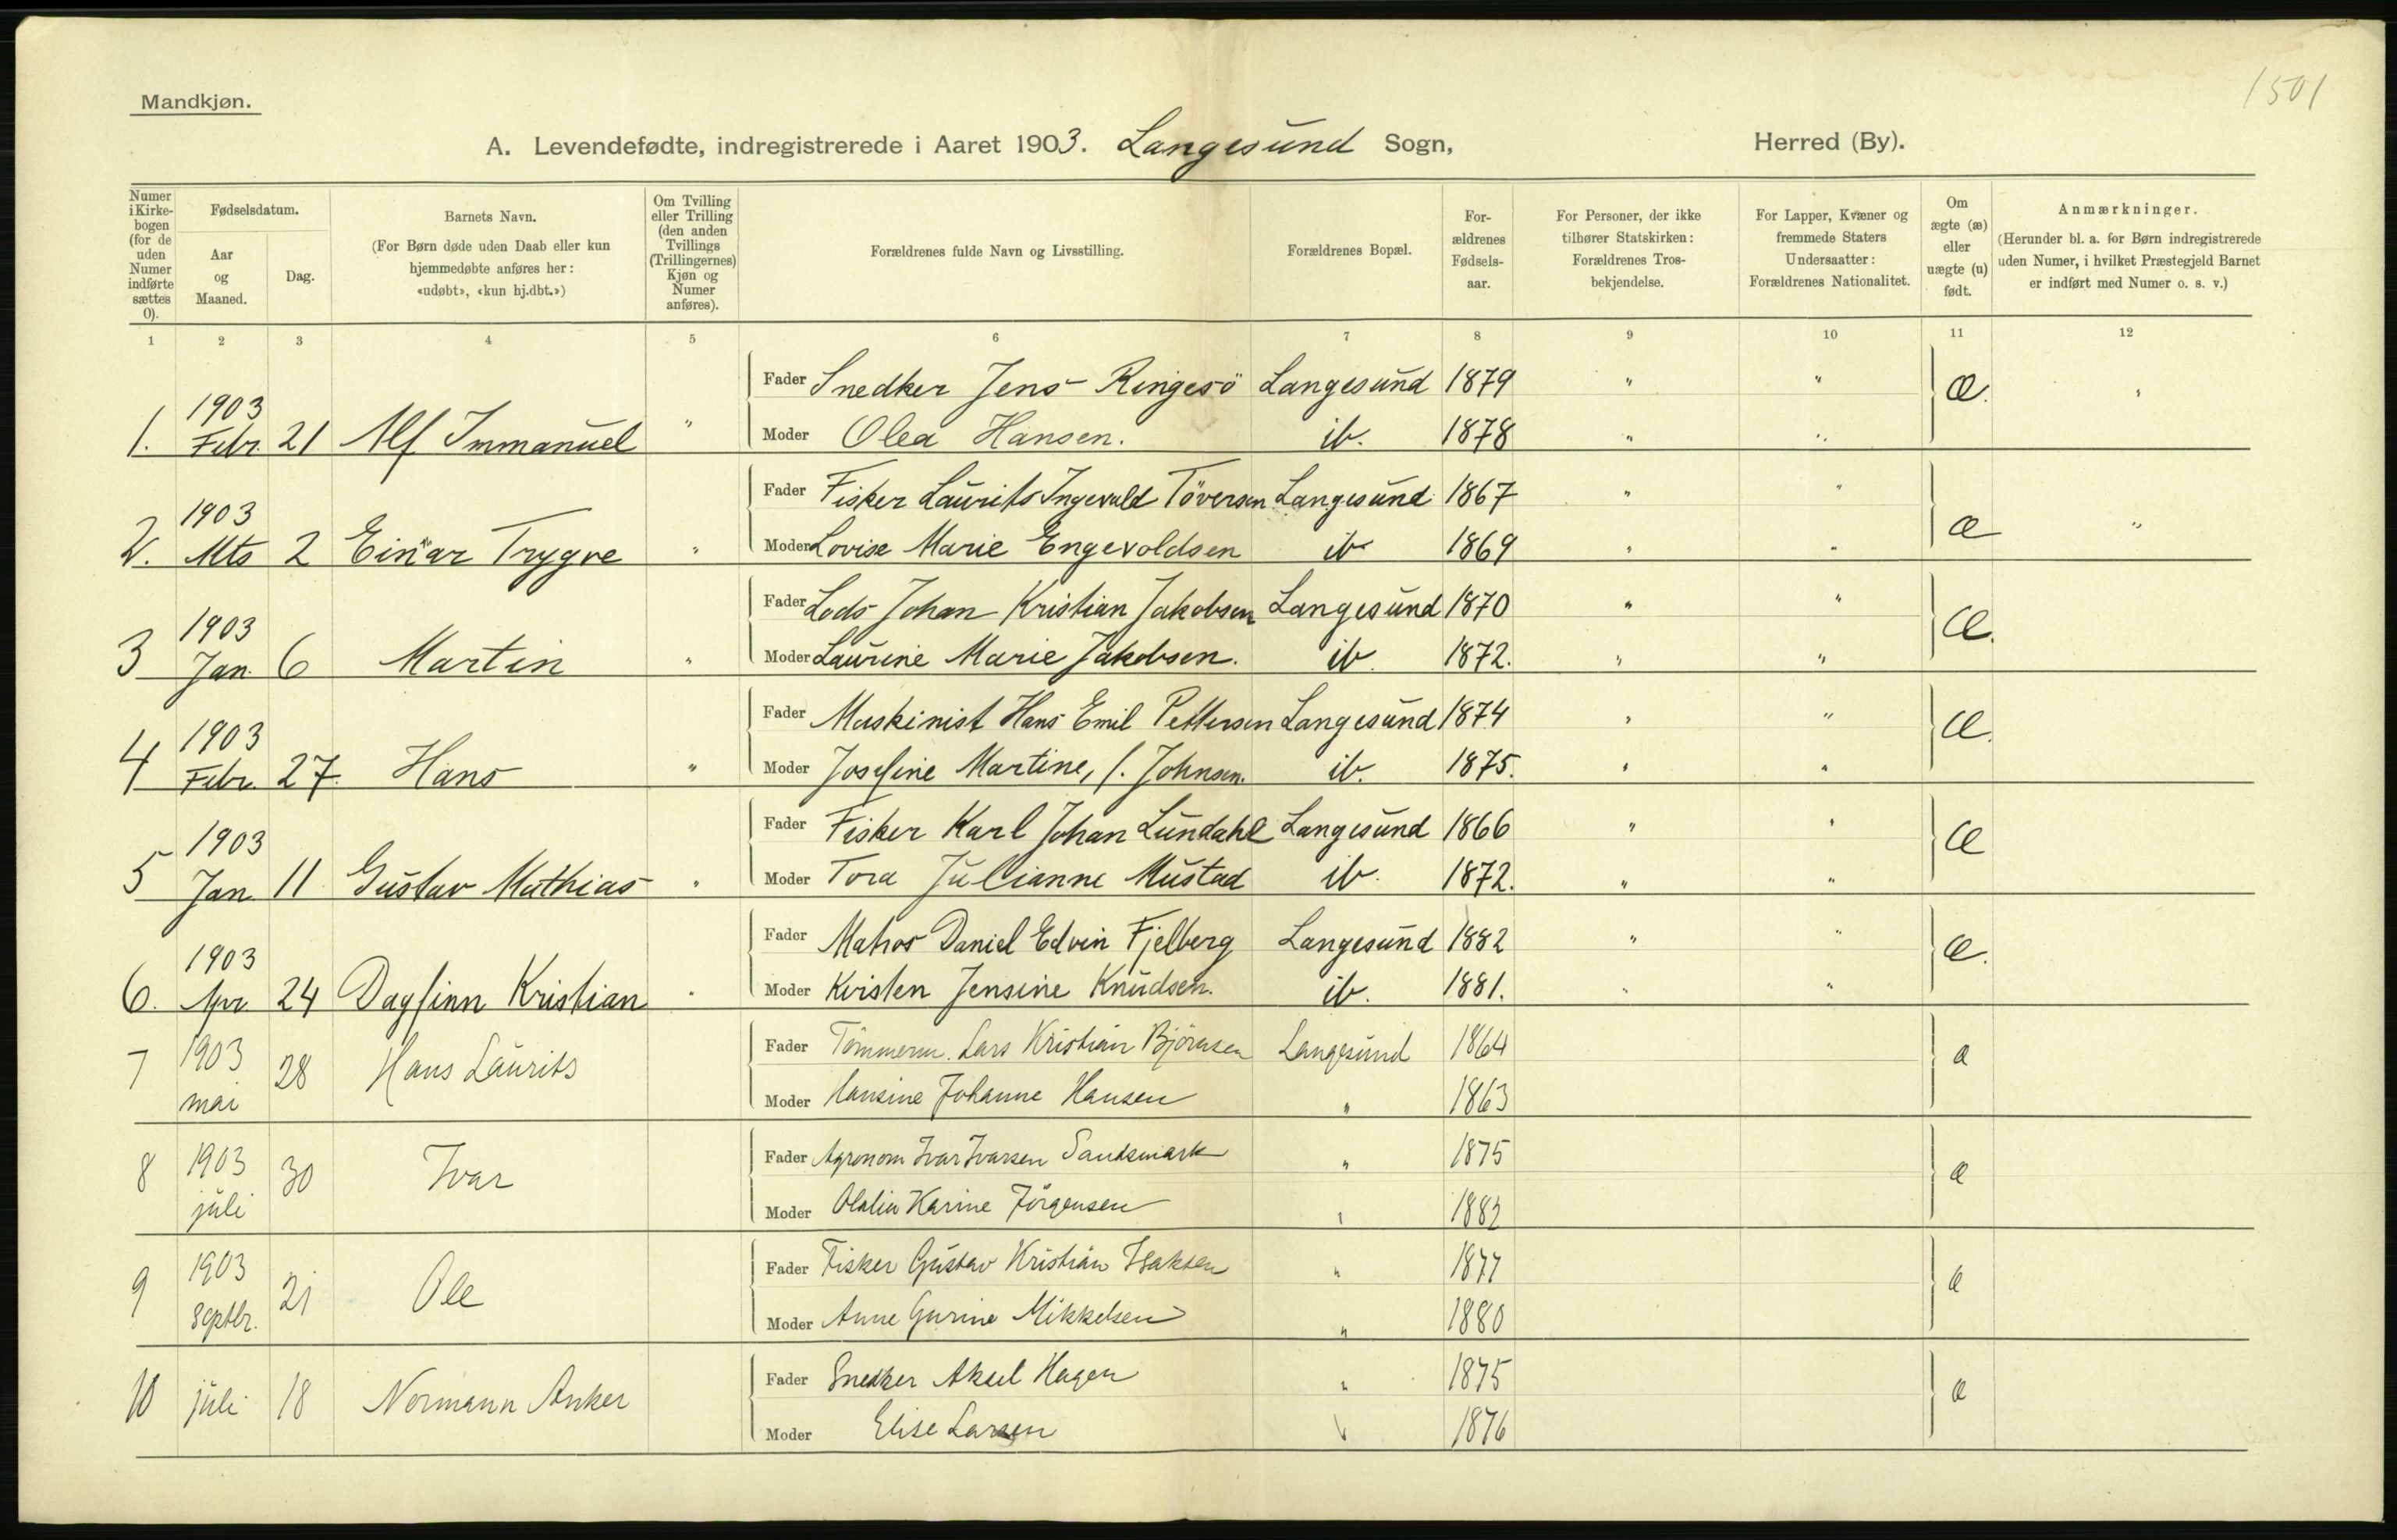 1501
Mandkjøn.
A. Levendefødte, indregistrerede i Aaret 1903. Langesund Sogn, Herred (By).
Numer i Kirkebogen (for de uden Numer indførte sættes 0).
Fødselsdatum.
Aar og Maaned.
Dag.
Barnets Navn.
(For Børn døde uden Daab eller kun hjemmedøbte anføres her: «udøbt», «kun hj.dbt.»)
Om Tvilling eller Trilling (den anden Tvillings (Trillingernes) Kjøn og Numer anføres).
Forældrenes fulde Navn og Livsstilling.
Forældrenes Bopæl.
Forældrenes Fødselsaar.
For Personer, der ikke tilhører Statskirken: Forældrenes Trosbekjendelse.
For Lapper, Kvæner og fremmede Staters Undersaatter: Forældrenes Nationalitet.
Om ægte (æ) eller uægte (u) født.
Anmærkninger.
(Herunder bl. a. for Børn indregistrerede uden Numer, i hvilket Præstegjeld Barnet er indført med Numer o. s. v.)
1 2 3 4 5 6 7 8 9 10 11 12
Fader Snedker Jens Ringesö Langesund 1879 " " æ. "
1. 1903 Febr. 21 Alf Immanuel " Moder Olea Hansen. ib. 1878 " "
Fader Fisker Laurits Ingevald Töversen Langesund 1867 " " æ "
2. 1903 Mts 2 Einar Trygve " Moder Lovise Marie Engevoldsen ib 1869 " "
Fader Lods Johan Kristian Jakobsen Langesund 1870 " " æ.
3 1903 Jan. 6 Martin " Moder Laurine Marie Jakobsen. ib. 1872. " "
Fader Maskinist Hans Emil Pettersen Langesund 1874 " " æ.
4 1903 Febr. 27. Hans " Moder Josefine Martine, f. Johnsen. ib. 1875. " "
Fader Fisker Karl Johan Lundahl Langesund 1866 " " æ
5 1903 Jan. 11 Gustav Mathias " Moder Tora Julianne Mustad ib. 1872. " "
Fader Matros Daniel Edvin Fjelberg Langesund 1882 " " æ.
6. 1903 Apr. 24 Dagfinn Kristian " Moder Kirsten Jensine Knudsen. ib. 1881. " "
Fader Tömmerm. Lars Kristian Björnsen Langesund 1864 æ
7 1903 mai 28 Hans Laurits Moder Hansine Johanne Hansen " 1863
Fader Agronom Ivar Ivarsen Sandsmark " 1875 æ
8 1903 juli 30 Ivar Moder Karine Jörgensen "
Fader Fisker Gustav Kristian Isaksen " 1877 æ
9 1903 Septbr. 21 Ole Moder Anne Gurine Mikkelsen " 1880
Fader Snedker Aksel Hagen " 1875 æ
10 juli 18 Normann Anker Moder Elise Larsen " 1876